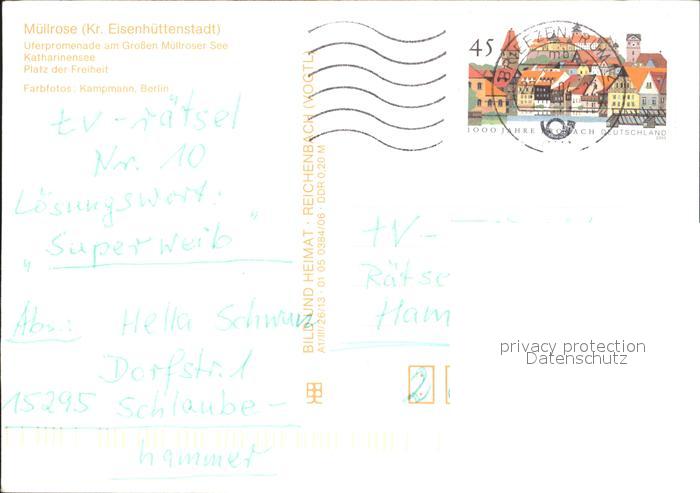 Müllrose (Kr. Eisenhüttenstadt)
Uferpromenade am Großen Müllroser See
Katharinensee
Platz der Freiheit
Farbfotos: Kampmann, Berlin
tv-rätsel
Nr. 10
Lösungswort:
„Superweib"
Abs.: Hella Schwarz
Dorfstr. 1
15295 Schlaube-
hammer
BILD UND HEIMAT · REICHENBACH (VOGTL)
A1/III/26/13 · 01 05 0384/06 · DDR 0,20 M
45
1000 JAHRE KRONACH DEUTSCHLAND
BRIEFZENTRUM
tv-
Rätse
Ham
2
privacy protection
Datenschutz